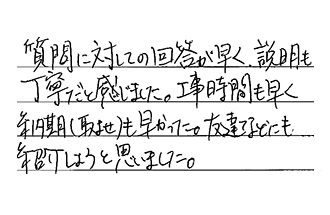 質問に対しての回答が早く、説明も
丁寧だと感じました。工事時間も早く
納期(取寄せ)も早かった。友達などにも
紹介しようと思いました。